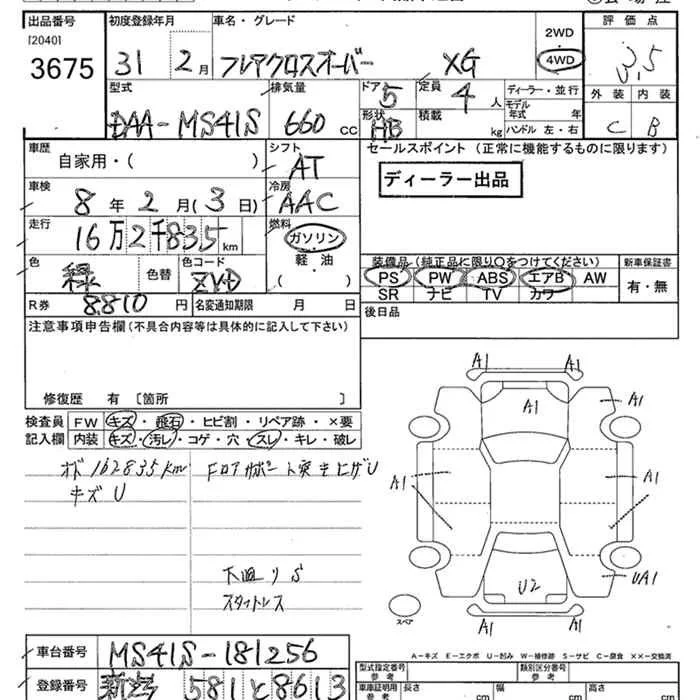 出品番号 初度登録年月 車名・グレード 2WD 評価点
[2040]
3675 31 2月 フレアクロスオーバー XG 4WD 3.5
型式 排気量 ドア 定員 ディーラー・並行 外装 内装
5 4人 モデル年式 年
DAA-MS41S 660cc 形状 HB 積載 kg ハンドル 左・右 C B
車歴 シフト セールスポイント(正常に機能するものに限ります)
自家用・( ) AT
ディーラー出品
車検 冷房
8年 2月(3日) AAC
走行 燃料
16万2千835km ガソリン
軽・油
装備品(純正品に限り○をつけてください) 新車保証書
色 色コード PS PW ABS エアB AW 有・無
緑 色替 ZVD ( ) SR ナビ TV カワ
R券 8.810円 名変通知期限 月 日 後日品
注意事項申告欄(不具合内容等は具体的に記入して下さい)
修復歴 有 [箇所 ]
検査員 FW キズ・飛石・ヒビ割・リペア跡・×要
記入欄 内装 キズ・汚レ・コゲ・穴・スレ・キレ・破レ
162835km
キズU
下廻りS
A1 A1
A1 A1
A1 A1
A1
U2 UA1
スペア A1 A1
A-キズ E-エクボ U-凹み W-補修跡 S-サビ C-腐食 XX-交換済
車台番号 MS41S-181256
型式指定番号 参考 類別区分番号 参考
登録番号 581 と8613
車庫証明用 参考 長さ cm 幅 cm 高さ cm